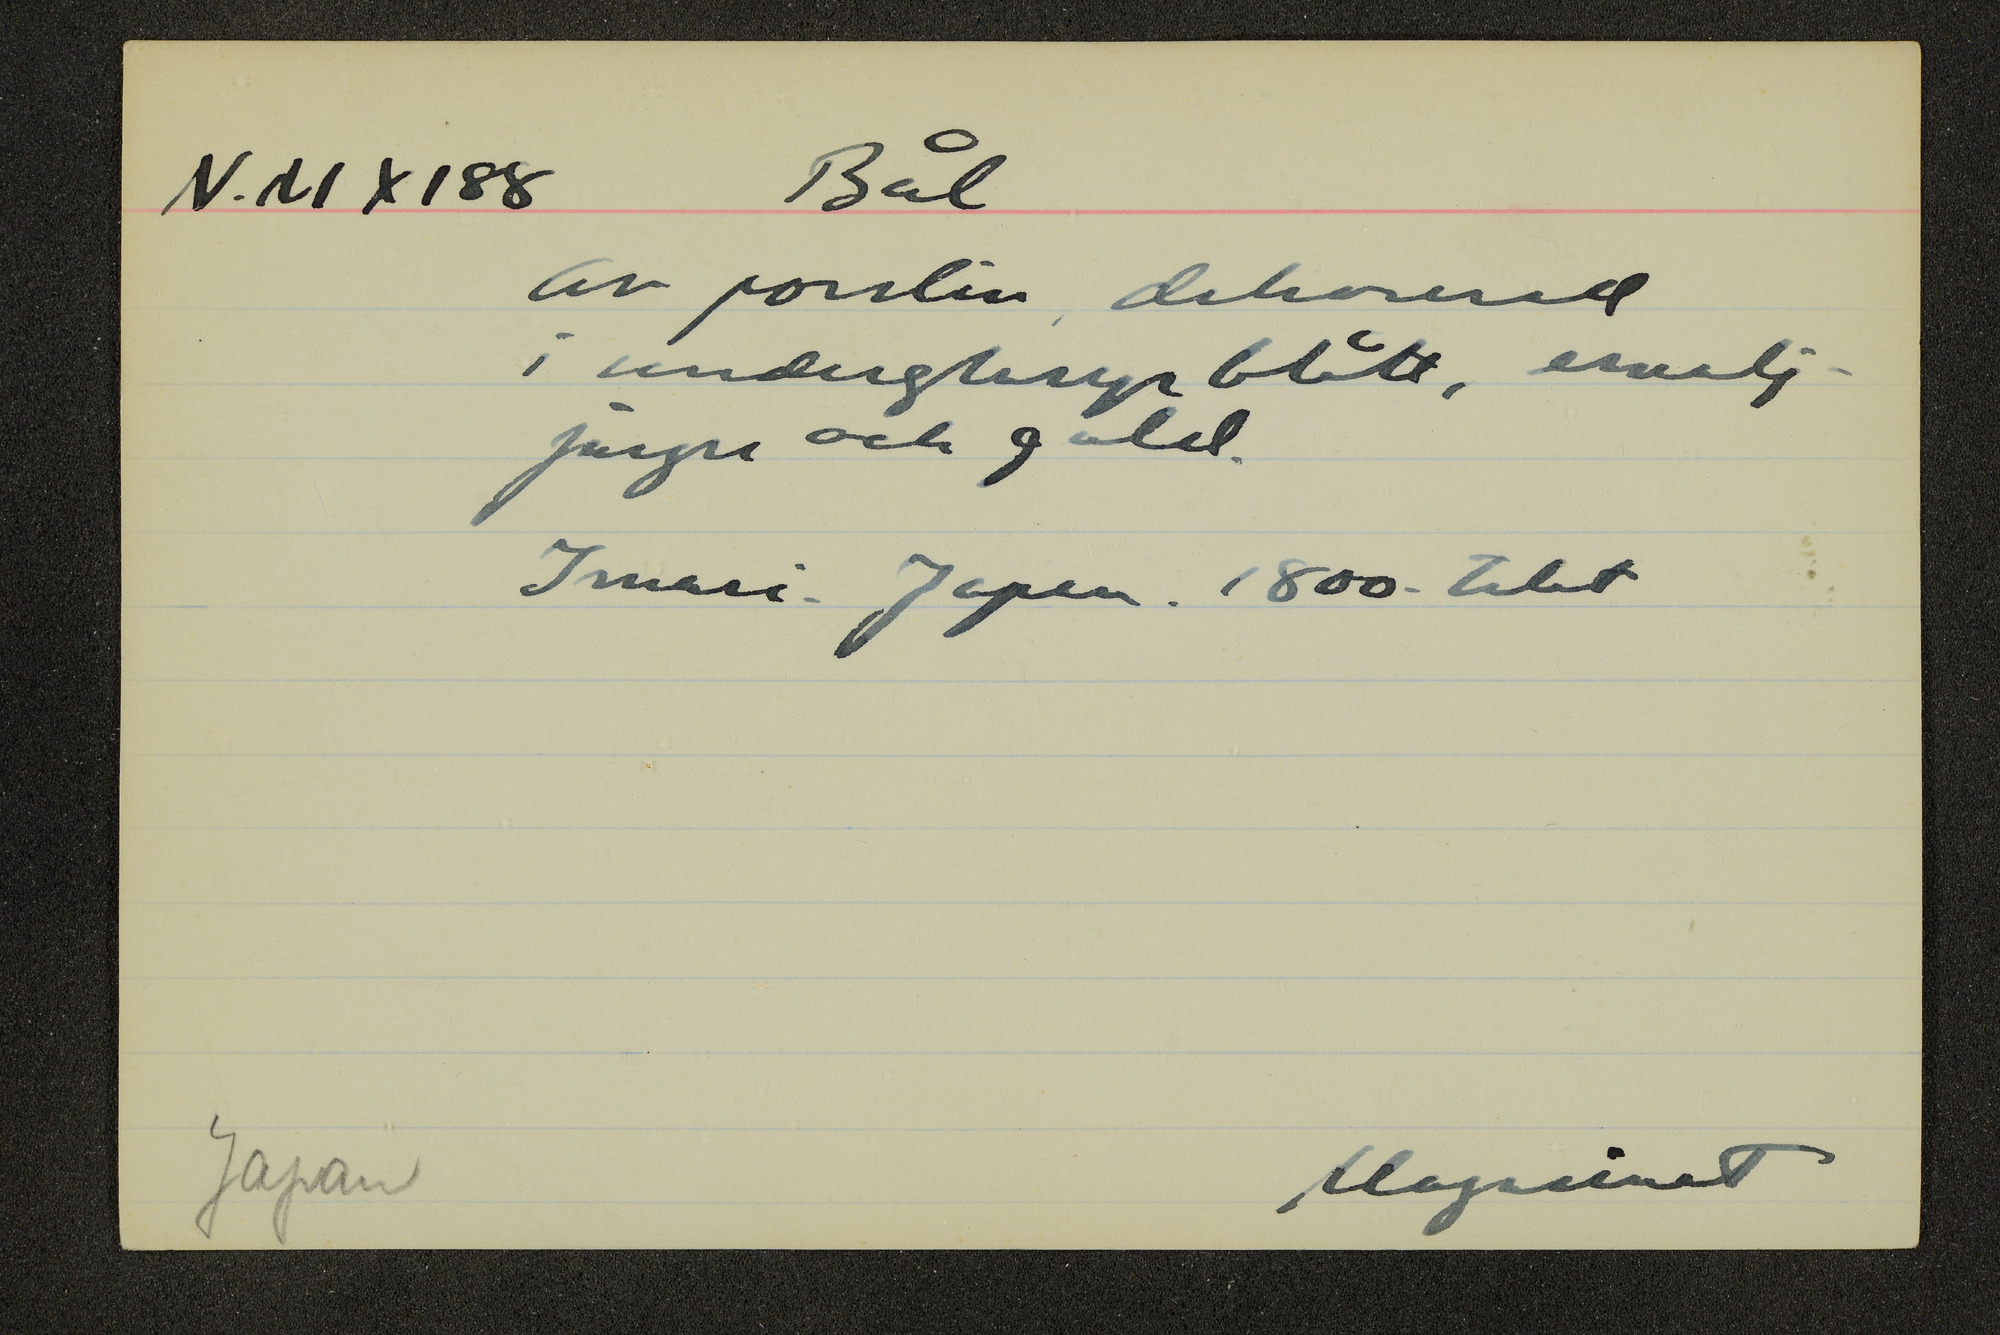 N.M X 188 Bål
av porslin, dekorerad
i underglasyrblått, emalj-
färger och guld.
Imari. Japan. 1800-talet
Japan
Magasinet